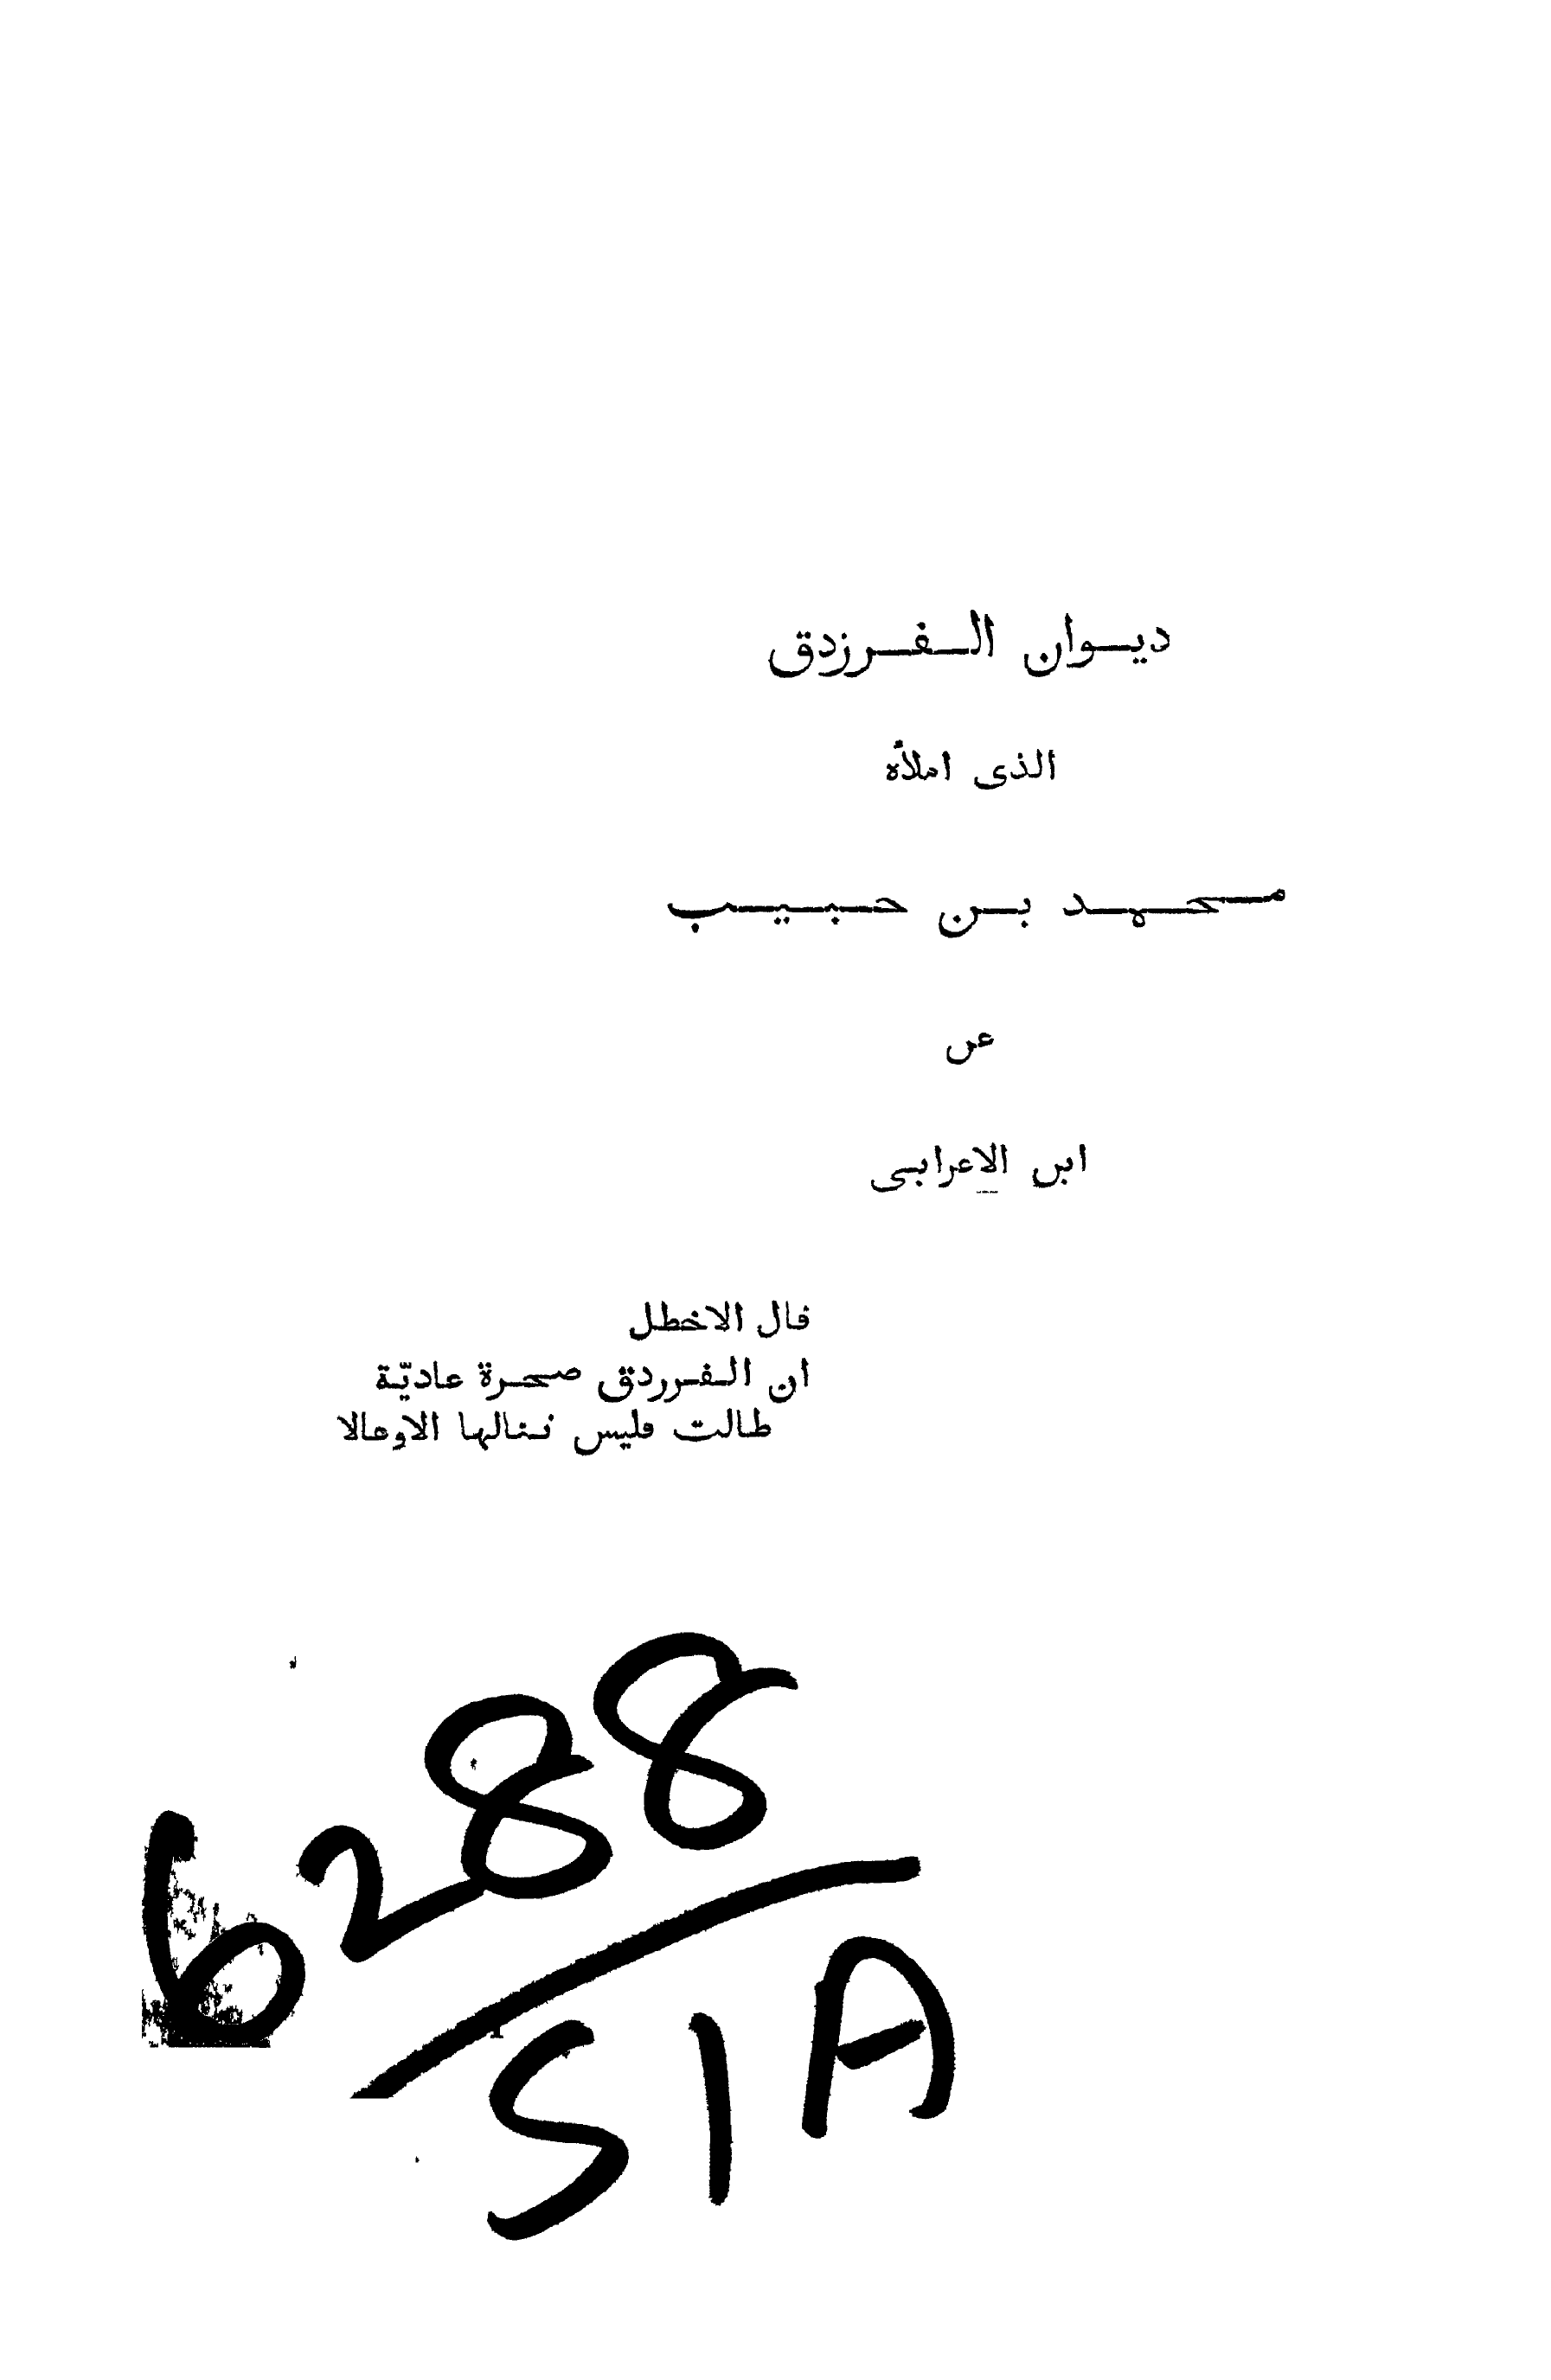 ديوان الفرزدق
الذى املأه
محمد بن حبيب
عن
ابن الاعرابى
قال الاخطل
ان الفرزدق صخرة عاديّة
طالت فليس تنالها الاوعالا
6288
S1A